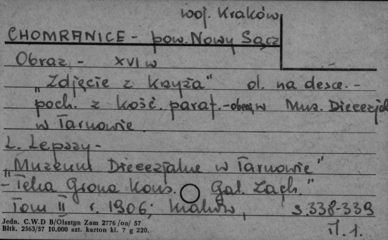 woj. Kraków
CHOMRANICE - pow. Nowy Sącz
Obraz - XVI w
"Zdjęcie z Krzyża" ol. na desce. -
poch. z kośc. paraf. - obecn. w Muz. Diecezjal
w Tarnowie
L. Lepszy -
"Muzeum Diecezjalne w Tarnowie"
- Teka Grona Kons. Gal. Zach."
Tom II r. 1906. Kraków, s. 338-339
Jedn. C.W.D B/Olsztyn Zam 2776/oa/ 57
Bltk. 2563/57 10.000 szt. karton kl. 7 g 220.